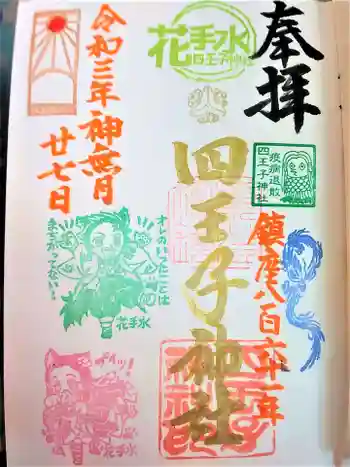 奉拝
疫病退散
四王子神社
鎮座八百六十一年
花手水
四王子神社
四王子神社
令和三年神無月
廿七日
オレのいったことは
まちがってない!
花手水
花手水